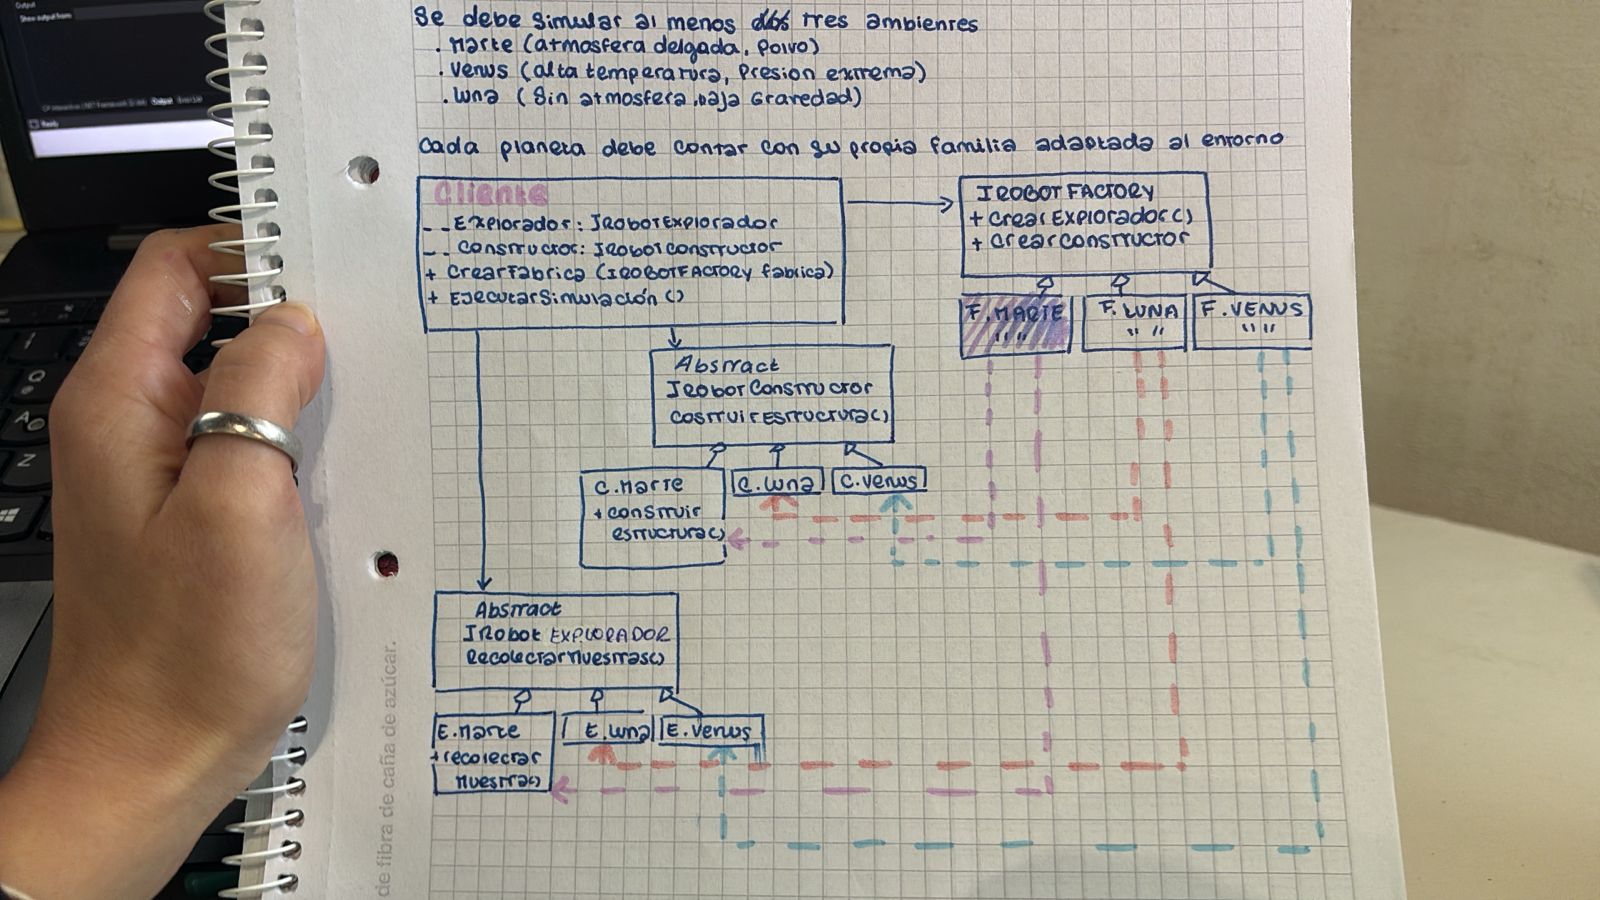 Se debe simular al menos tres ambientes
. Marte (atmosfera delgada, polvo)
. Venus (alta temperatura, Presion extrema)
. Luna (Sin atmosfera, baja Gravedad)
Cada planeta debe contar con su propia familia adaptada al entorno
Cliente
- _ Explorador: IRobotExplorador
- _ Constructor: IRobotConstructor
+ CrearFabrica (IROBOTFACTORY fabrica)
+ EjecutarSimulación ()
IROBOTFACTORY
+ CrearExplorador()
+ CrearConstructor
F. MARTE
" "
F. LUNA
" "
F. VENUS
" "
Abstract
IRobotConstructor
CostruirEstructura()
C. Marte
+ construir
estructura()
C. Luna
C. Venus
Abstract
IRobot EXPLORADOR
RecolectarMuestras()
E. Marte
+ recolectar
Muestra()
E. Luna
E. Venus
de fibra de caña de azúcar.
Output
Show output from:
Output
Ready
Q
A
Z